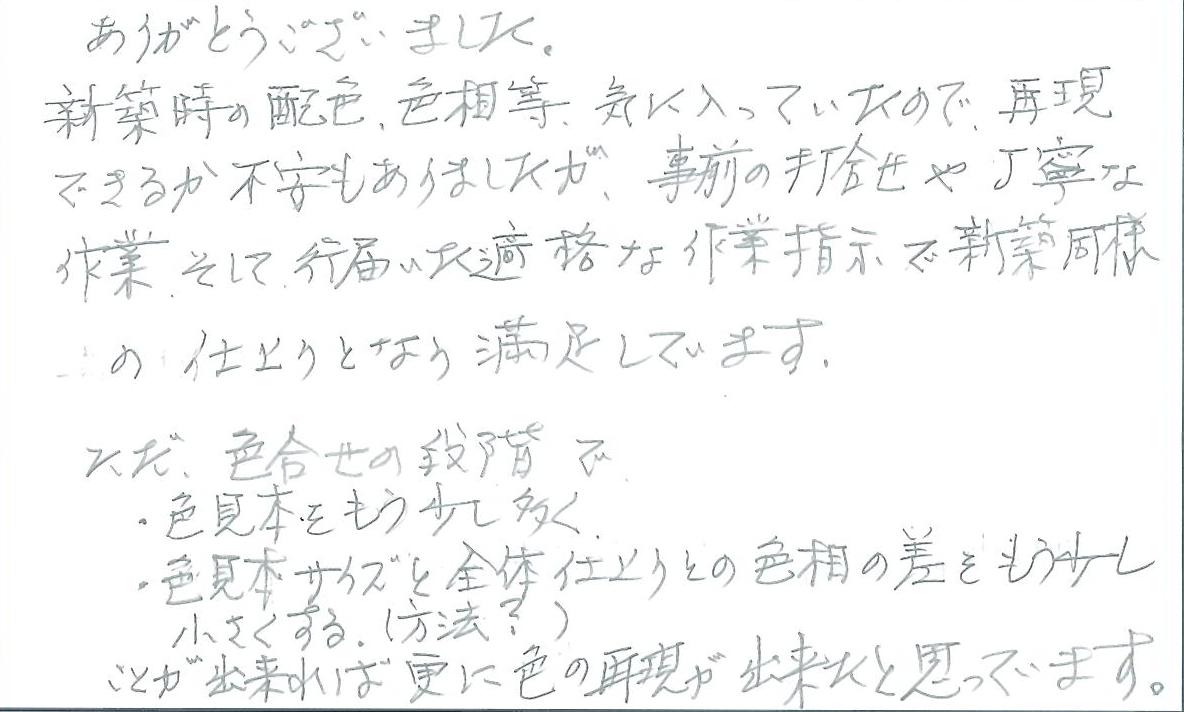 ありがとうございました。
新築時の配色、色相等、気に入っていたので、再現
できるか不安もありましたが、事前の打合せや丁寧な
作業、そして、行届いた適格な作業指示で新築同様
の仕上りとなり満足しています。
ただ、色合せの段階で、
・色見本をもう少し多く、
・色見本サイズと全体仕上りとの色相の差をもう少し
小さくする。(方法?)
ことが出来れば更に色の再現が出来たと思っています。